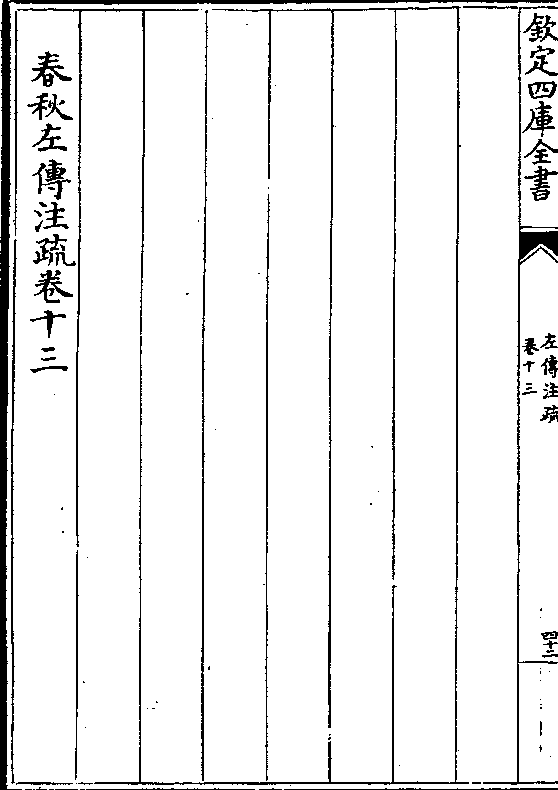 欽定四庫全書
左傳注疏
卷十三
四十二
春秋左傳注疏卷十三